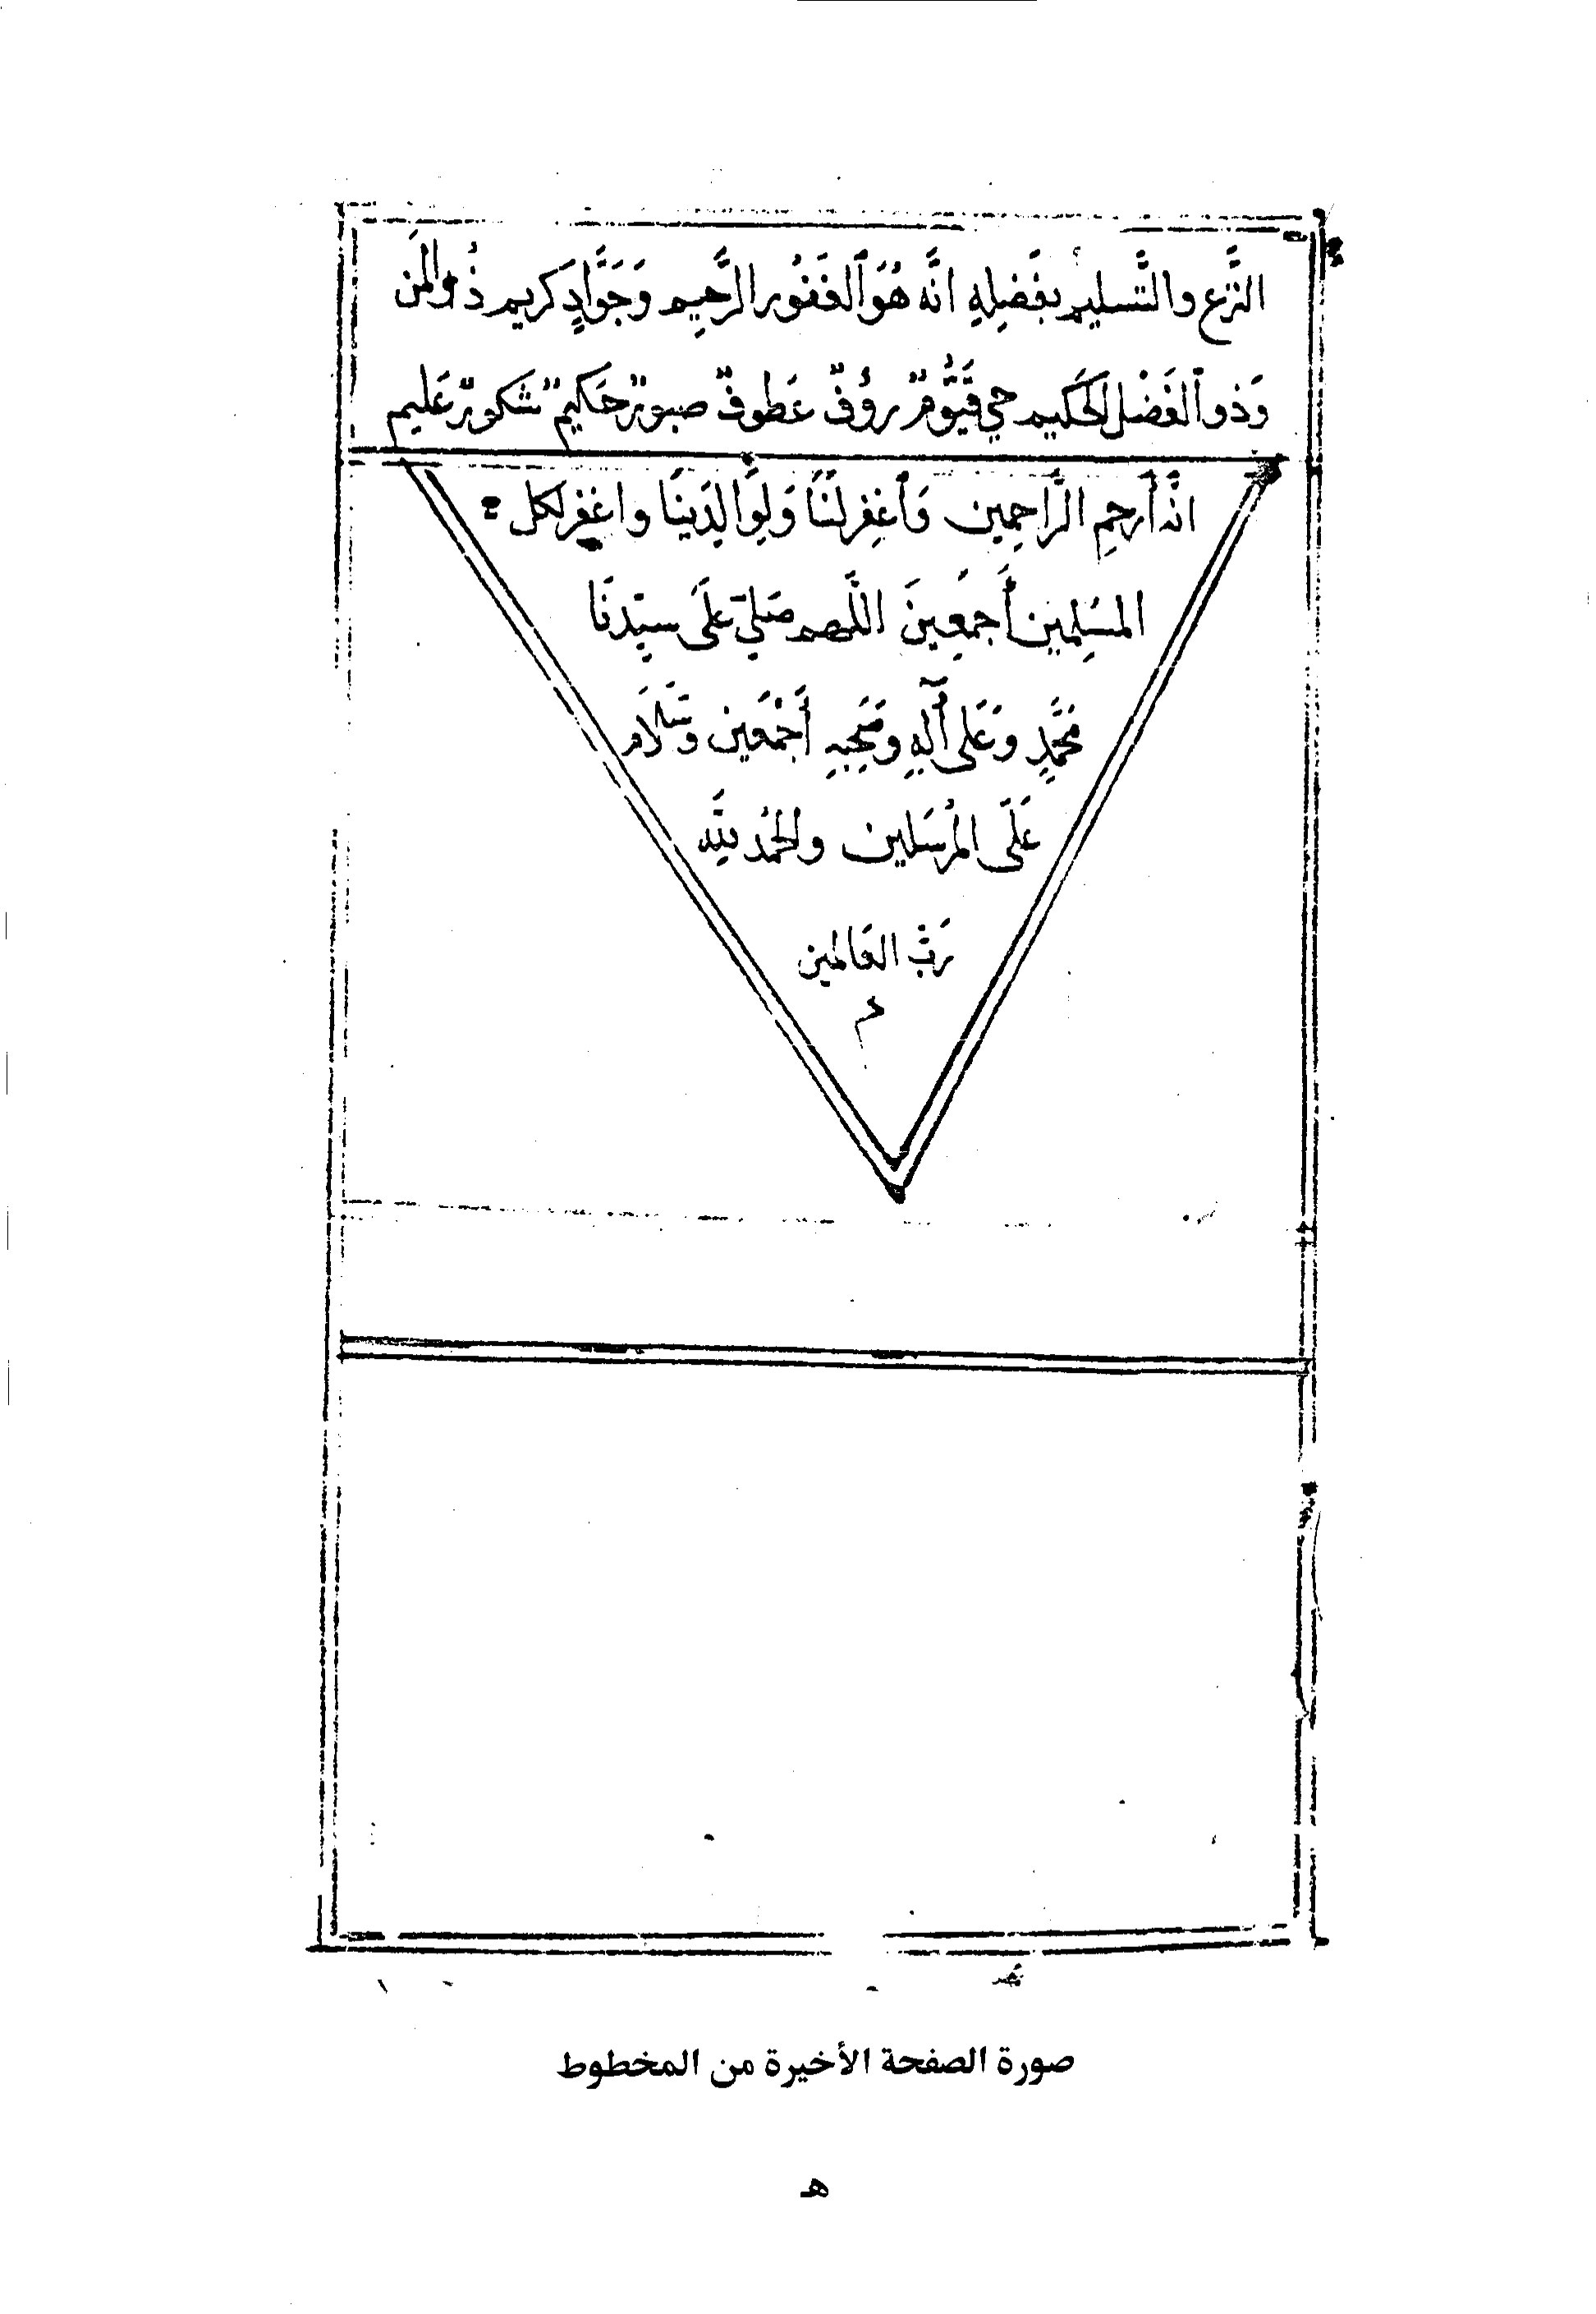 النَّزع والتَّسليم بفَضلِهِ انَّه هُوَ ٱلغَفُور الرَّحِيم وَجَوَّادٍ كَريم ذُو المَن
وَذو ٱلفَضْل الحَكيم حي قَيُّومٌ رؤفٌ عَطوفٌ صبورٌ حَكيمٌ شكورٌ عَليم
انَّه أرحِم الرَّاحِمين وَٱغفِر لَنَا وَلِوَالِدَينَا واغفِر لكل
المسْلِمين أَجمَعِينَ اللَّهم صَلِّي عَلَى سيِّدنَا
مَحَمَّدٍ وَعَلى آلِهِ وصَحبِهِ أَجْمَعَين وسَلَام
عَلَى المُرسَلين والحَمُد لِلَّه
رَبِّ العَالمين
م
صورة الصفحة الأخيرة من المخطوط
هـ